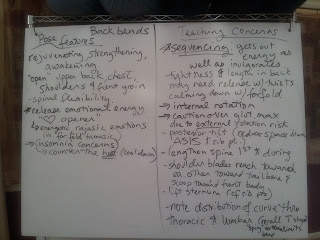 Back bends
Pose features
rejuvenating, strengthening,
awakening
"open" upper back, chest,
shoulders & front groin
- spinal flexibility
* release emotional energy
♡ opener
insomnia concerns
→ counter the heat (cool down)
Teaching Concerns
* sequencing gets out
energy as
well as invigorates
- tightness & length in back
may need release w/ twists
calming down w/ forfold
→ internal rotation
→ caution over glut max
due to external rotation risk
- posterior tilt (reduce space btwn
ASIS & rib pt.)
- lengthen spine 1st & during
- shoulder blades reach toward
ea other toward tailbone &
scoop toward front body
- lift sternum (of rib pts)
- note distribution of curve thru
thoracic & lumbar (recall T shape
spin limits